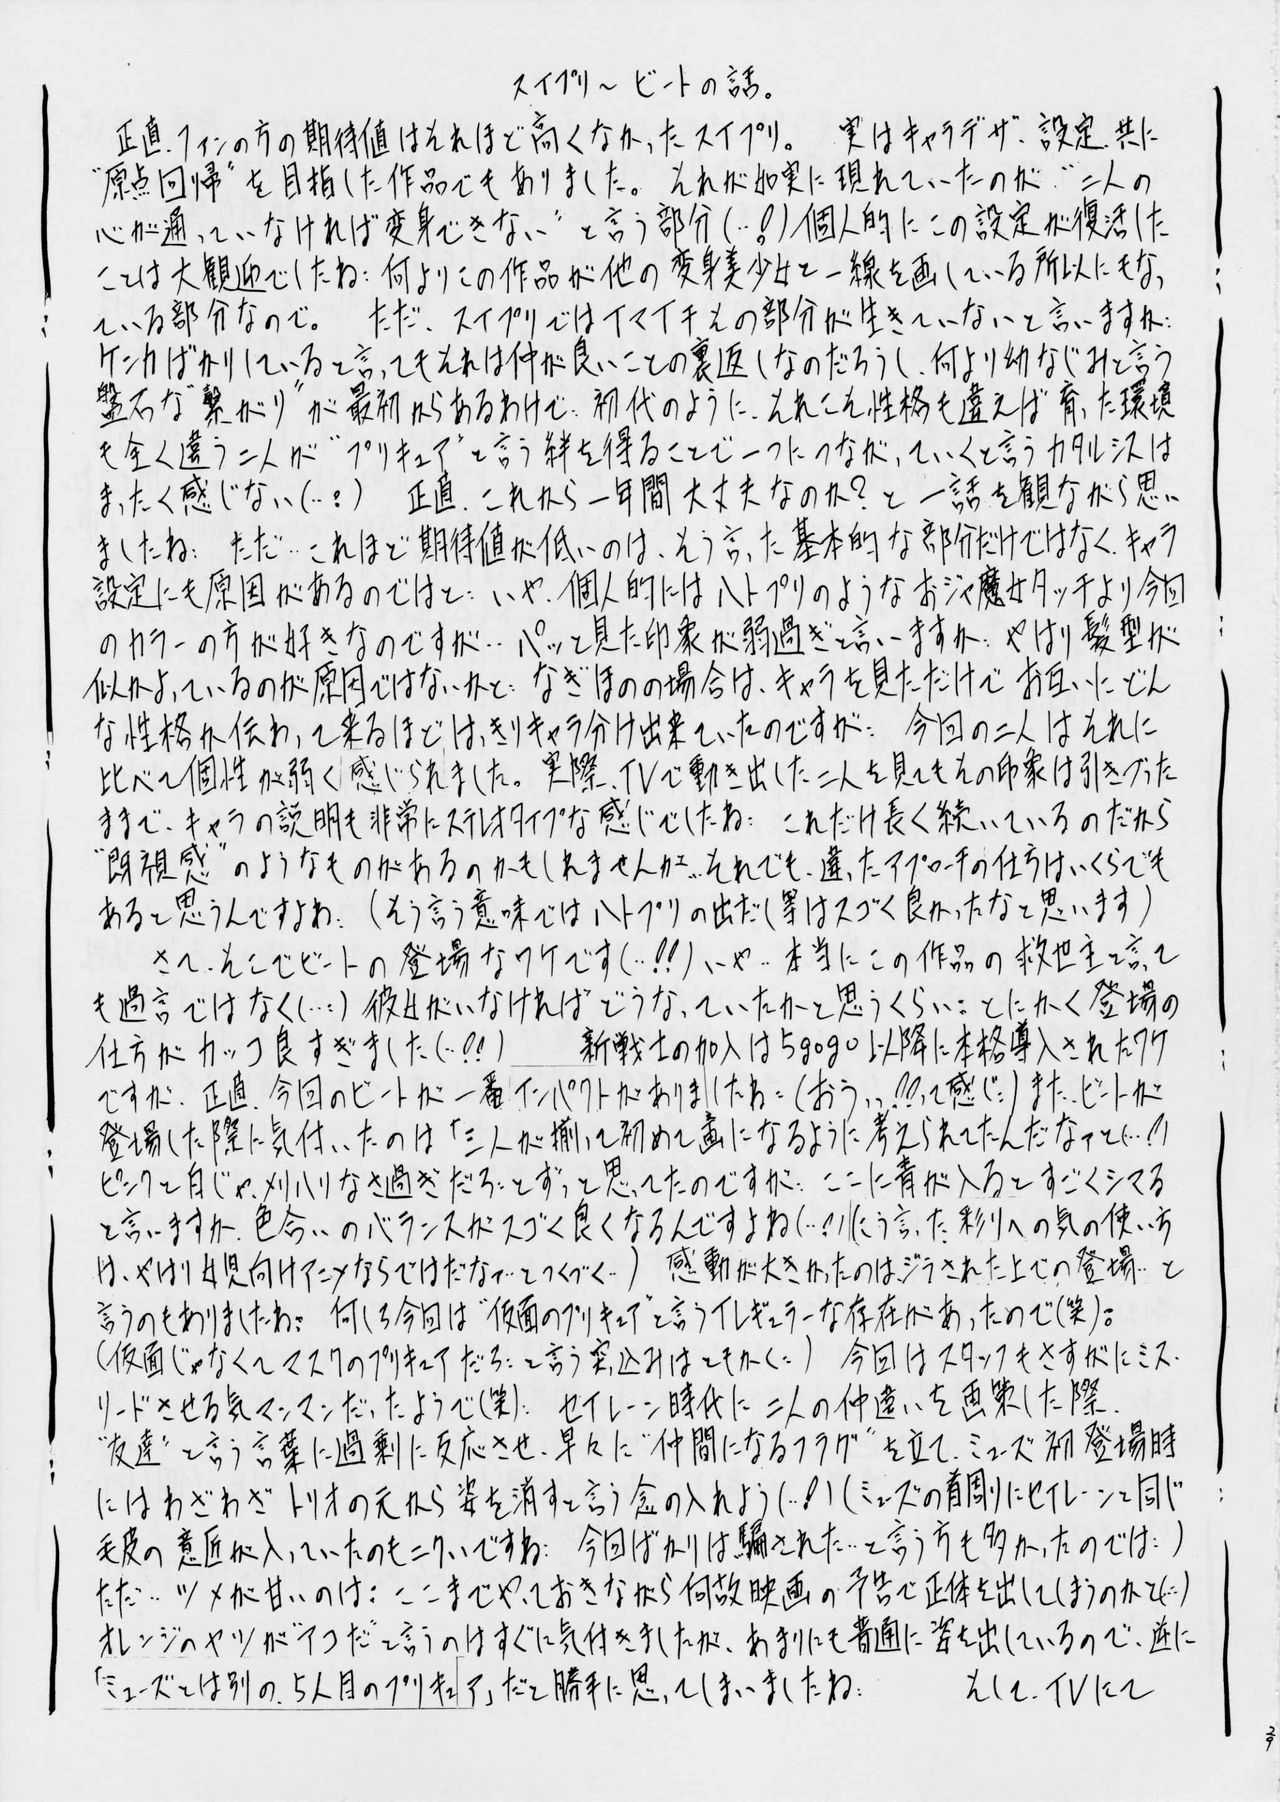 スイプリ～ビートの話。
正直、ファンの方の期待値はそれほど高くなかったスイプリ。 実はキャラデザ、設定、共に
"原点回帰"を目指した作品でもありました。 それが如実に現れていたのが、"二人の
心が通っていなければ変身できない"と言う部分(‥!)個人的にこの設定が復活した
ことは大観迎でしたね:何よりこの作品が他の変身美少女と一線を画している所以にもなっ
ている部分なので。 ただ、スイプリではイマイチその部分が生きていないと言いますか:
ケンカばかりしていると言ってもそれは仲が良いことの裏返しなのだろうし、何より幼なじみと言う
盤石な"繋がり"が最初からあるわけで:初代のように、それこそ性格も違えば育った環境
も全く違う二人が"プリキュア"と言う絆を得ることで一つにつながっていくと言うカタルシスは
まったく感じない(‥:) 正直、これから一年間大丈夫なのか?と一話を観ながら思い
ましたね: ただ‥これほど期待値が低いのは、そう言った基本的な部分だけではなく、キャラ
設定にも原因があるのではと: いや、個人的にはハトプリのようなおジャ魔女タッチより今回
のカラーの方が好きなのですが‥パッと見た印象が弱過ぎと言いますか:やはり髪型が
似かよっているのが原因ではないかと: なぎほのの場合は、キャラを見ただけでお互いにどん
な性格か伝わって来るほどはっきりキャラ分け出来ていたのですが: 今回の二人はそれに
比べて個性が弱く感じられました。実際、TVで動き出した二人を見てもその印象は引きづった
ままで、キャラの説明も非常にステレオタイプな感じでしたね: これだけ長く続いているのだから
"既視感"のようなものがあるのかもしれませんが‥それでも、違ったアプローチの仕方はいくらでも
あると思うんですよね:(そう言う意味ではハトプリの出だし等はスゴく良かったなと思います)
さて、そこでビートの登場なワケです(‥!!)いや‥本当にこの作品の救世主と言って
も過言ではなく(‥:)彼女がいなければどうなっていたかと思うくらい:とにかく登場の
仕方がカッコ良すぎました(‥!!) 新戦士の加入は5gogo以降に本格導入されたワケ
ですが、正直、今回のビートが一番インパクトがありましたね:(おうっ‥!!って感じ:)また、ビートが
登場した際に気付いたのは「三人が揃って初めて画になるように考えられてたんだなァと(‥!)
ピンクと白じゃ、メリハリなさ過ぎだろ:とずっと思ってたのですが: ここに青が入るとすごくシマる
と言いますか、色合いのバランスがスゴく良くなるんですよね(‥!)(こう言った彩りへの気の使い方
は、やはり女児向けアニメならではだなァ‥とつくづく‥) 感動が大きかったのは、ジラされた上での登場‥と
言うのもありましたね: 何しろ今回は"仮面のプリキュア"と言うイレギュラーな存在があったので(笑):
(仮面じゃなくてマスクのプリキュアだろ:と言う突っ込みはともかく:) 今回はスタッフもさすがにミス・
リードさせる気マンマンだったようで(笑): セイレーン時代に二人の仲違いを画策した際、
"友達"と言う言葉に過剰に反応させ、早々に"仲間になるフラグ"を立て、ミューズ初登場時
にはわざわざトリオの元から姿を消すと言う念の入れよう(‥!)(ミューズの首周りにセイレーンと同じ
毛皮の意匠が入っていたのもニクいですね: 今回ばかりは騙された‥と言う方も多かったのでは:)
ただ‥ツメが甘いのは:ここまでやっておきながら何故映画の予告で正体を出してしまうのかと(‥)
オレンジのヤツが"アコ"だと言うのはすぐに気付きましたが、あまりにも普通に姿を出しているので、逆に
「ミューズとは別の、5人目のプリキュア」だと勝手に思ってしまいましたね: そして、TVにて
29